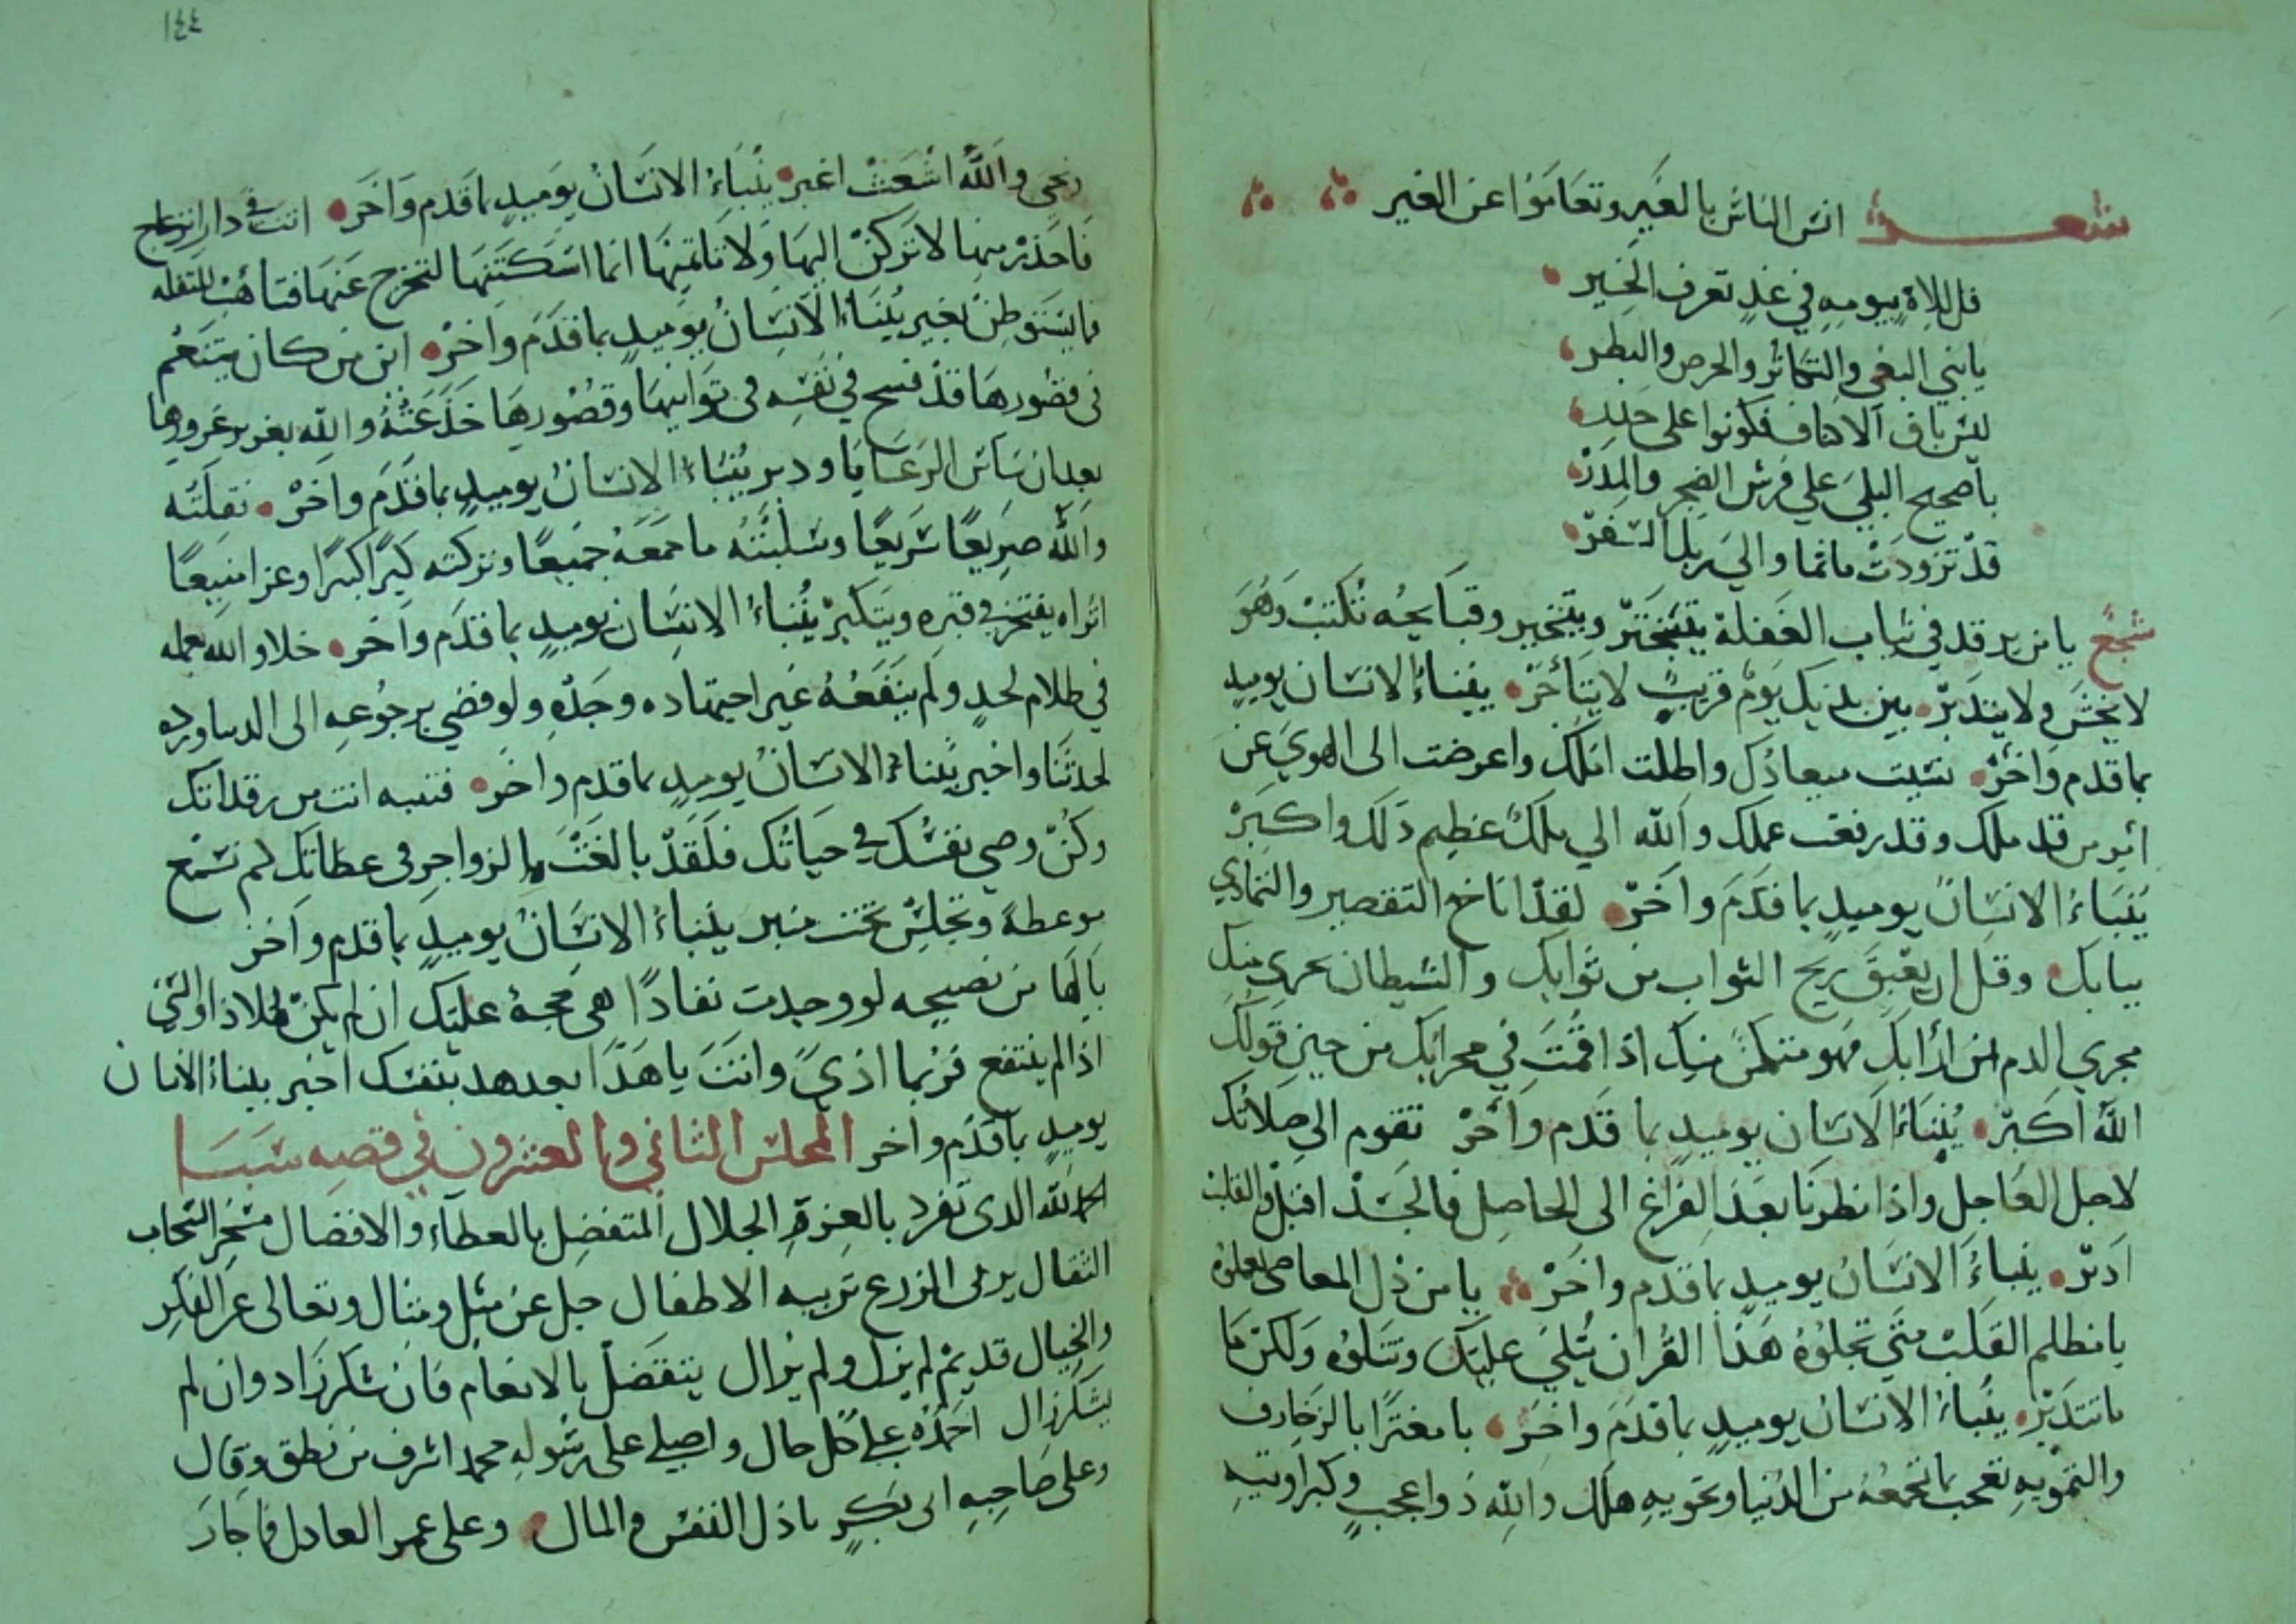 شعر انس الناس بالغير وتعاموا عن الغير
قل للاه بيومه في غد تعرف الخبر
يا بني البغي والتكاثر والحرص والبطر
يا صحيح البلي علي فرش الصخر والمدر
قد تزودت ماثما والي ربك السفر
سجع يا من يرقد في ثياب الغفلة يتبختر وقبايحه تكتب وهو
لا يخشى ولا يتدبر بين يديك يوم قريب لا يتأخر ينباء الانسان يوميذ
بما قدم وأخر نسيت ميعادك واطلت املك واعرضت الى الهوي عن
قد ملك وقد رفعت عملك والله الي ملك عظيم ذلك واكبر
ينباء الانسان يوميذ بما قدم واخر لقد اناخ التقصير والتمادي
ببابك وقل ان يعبق ريح الثواب من ثوابك والشيطان يجري منك
مجري الدم من ارابك فهو متمكن منك اذا قمت في محرابك من حين قولك
الله اكبر ينباء الانسان يوميذ بما قدم وأخر تقوم الي صلاتك
لاجل العاجل واذا نظرنا بعد الفراغ الى الحاصل فالجسد اقبل والقلب
ادبر ينباء الانسان يوميذ بما قدم واخر يا من ذل المعاصي يعلوه
يا مظلم القلب متي تجلوه هذا القران يتلي عليك وتتلوه ولكن ما
تتدبر ينباء الانسان يوميذ بما قدم واخر يا مغترا بالزخارف
والتمويه تعجب بما تجمعه من الدنيا وتحويه هلك والله ذو اعجب وكبر اوتيه
١٤٤
والله اشعث اغبر ينباء الانسان يوميذ بما قدم واخر انت في دار انزعاج
فاحذر منها لا تركن اليها ولا تامنها انما اسكنتها لتخرج عنها فتاهب للنقله
فما يستوطن بغير ينباء الانسان يوميذ بما قدم واخر اين من كان يتنعم
في قصورها قد فسح في نفسه في توانيها وقصورها خدعته والله بغرير غرورها
بعد ان ساس الرعايا ودبر ينباء الانسان يوميذ بما قدم واخر نقلته
والله صريعا سريعا وسلبته ما جمعه جميعا وتركته كبرا كبرا وعزا منيعا
اتراه يفتخر في قبره ويتكبر ينباء الانسان يوميذ بما قدم واخر خلا والله بعمله
في ظلام لحد ولم ينفعه غير اجتهاده وجده ولو قضي برجوعه الى الدنيا ورده
لحدثنا واخبر ينباء الانسان يوميذ بما قدم واخر فتنبه انت من رقداتك
وكن وصي نفسك في حياتك فلقد بالغت الزواجر في عظاتك لم تسمع
موعظة وتجلس تحت منبر ينباء الانسان يوميذ بما قدم واخر
يا لها من نصيحه لو وجدت نفادا هي حجة عليك ان لم يكن
اذا لم ينتفع فربما اذي وانت يا هذا بعد هذ بنفسك اخبر ينباء الانسان
يوميذ بما قدم واخر المجلس الثاني والعشرون في قصه سبا
الحمد لله الدى تفرد بالعزة والجلال المتفضل بالعطآء والافضال مسخر السحاب
الثقال مربي الزرع تربيه الاطفال جل عن مثل ومثال وتعالى عن الفكر
والخيال قديم لم يزل ولم يزال يتفضل بالانعام فان شكر زاد وان لم
يشكر ازال احمده علي كل حال واصلي على رسوله محمد اشرف من نطق وقال
وعلى صاحبه ابى بكر باذل النفس والمال وعلى عمر العادل فما جار